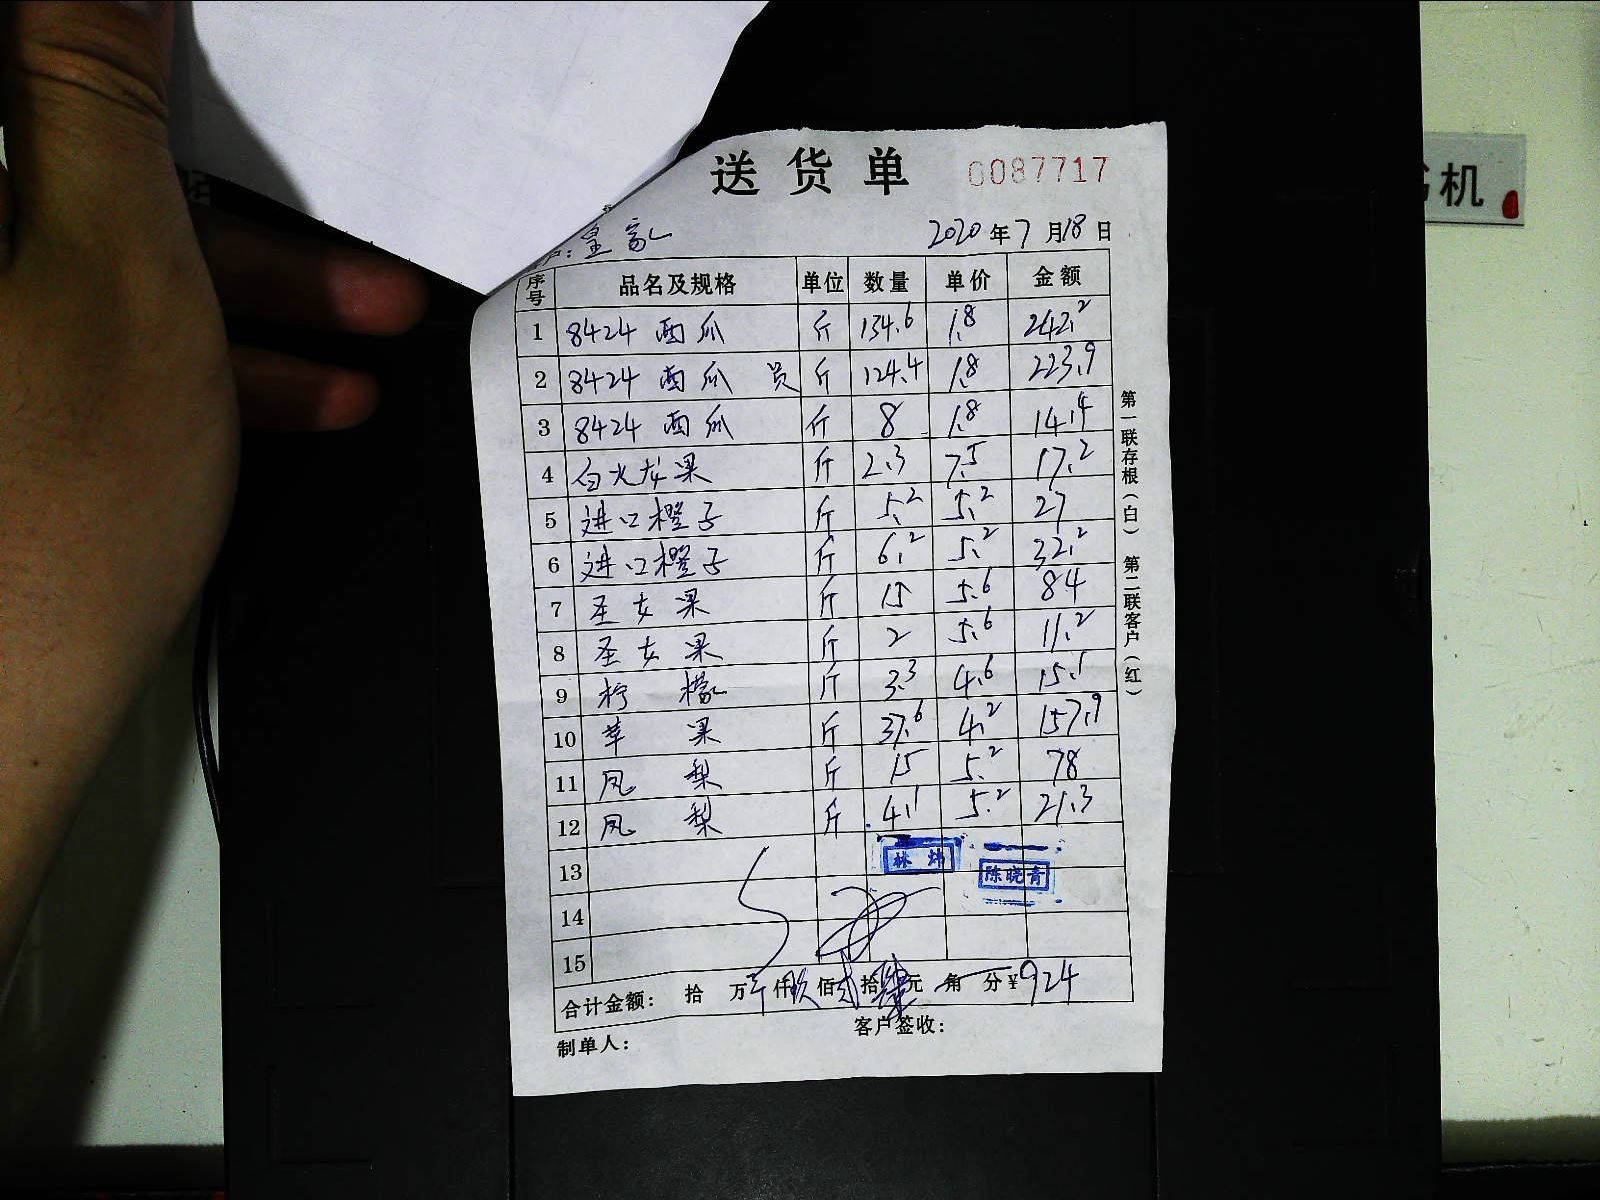 送货单 0087717
户：皇家 2020年7月18日
序号 品名及规格 单位 数量 单价 金额
1 8424 西瓜 斤 134.6 1.8 242.2
2 8424 西瓜 员 斤 124.4 1.8 223.9
3 8424 西瓜 斤 8 1.8 14.4
4 白火龙果 斤 2.3 7.5 17.2
5 进口橙子 斤 5.2 5.2 27
6 进口橙子 斤 6.2 5.2 32.2
7 圣女果 斤 15 5.6 84
8 圣女果 斤 2 5.6 11.2
9 柠檬 斤 3.3 4.6 15.1
10 苹果 斤 37.6 4.2 157.9
11 凤梨 斤 15 5.2 78
12 凤梨 斤 4.1 5.2 21.3
13
林炜 陈晓青
14
15
合计金额： 拾 万 仟 玖 佰 贰 拾 肆 元 角 分 ¥924
制单人： 客户签收：
第一联存根（白） 第二联客户（红）
机